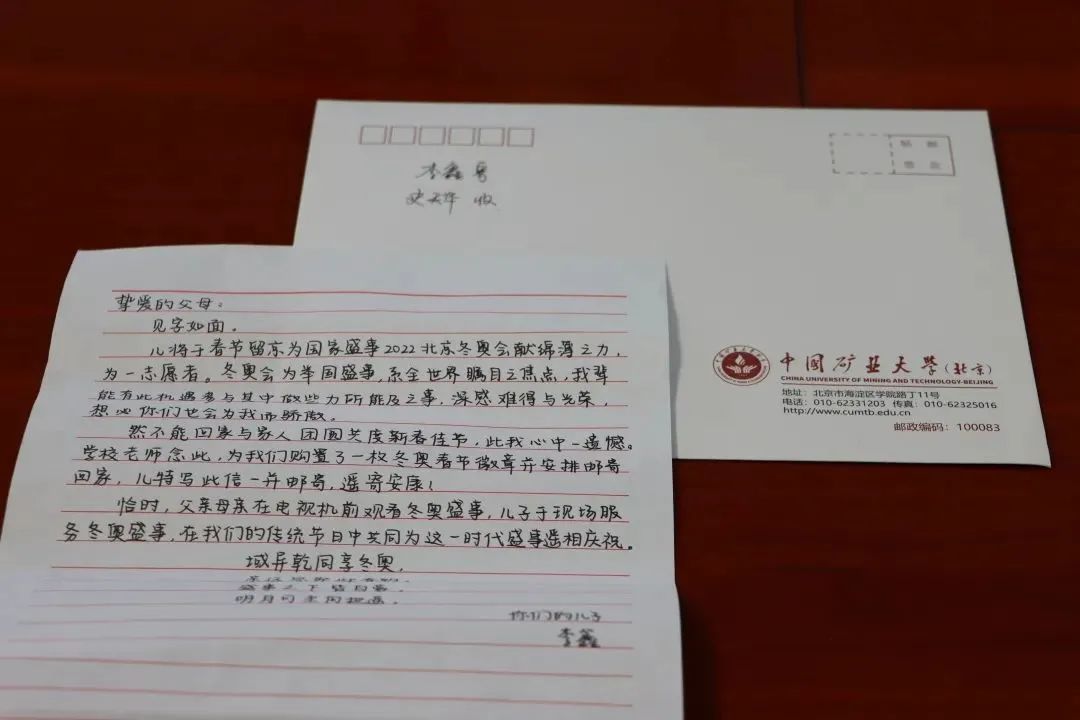 李鑫
收
中国矿业大学(北京)
CHINA UNIVERSITY OF MINING AND TECHNOLOGY-BEIJING
地址:北京市海淀区学院路丁11号
电话:010-62331203 传真:010-62325016
http://www.cumtb.edu.cn
邮政编码:100083
挚爱的父母:
见字如面。
儿将于春节留京为国家盛事2022北京冬奥会献绵薄之力,
为一志愿者。冬奥会为举国盛事,系全世界瞩目之焦点,我辈
能有此机遇参与其中做些力所能及之事,深感难得与光荣,
想必你们也会为我而骄傲。
然不能回家与家人团圆共度新春佳节,此我心中一遗憾。
学校老师念此,为我们购置了一枚冬奥春节徽章并安排邮寄
回家,儿特写此信一并邮寄,遥寄安康!
恰时,父亲母亲在电视机前观看冬奥盛事,儿子于现场服
务冬奥盛事,在我们的传统节日中共同为这一时代盛事遥相庆祝。
域异乾同享冬奥,
盛事之下皆
明月
你们的儿子
李鑫